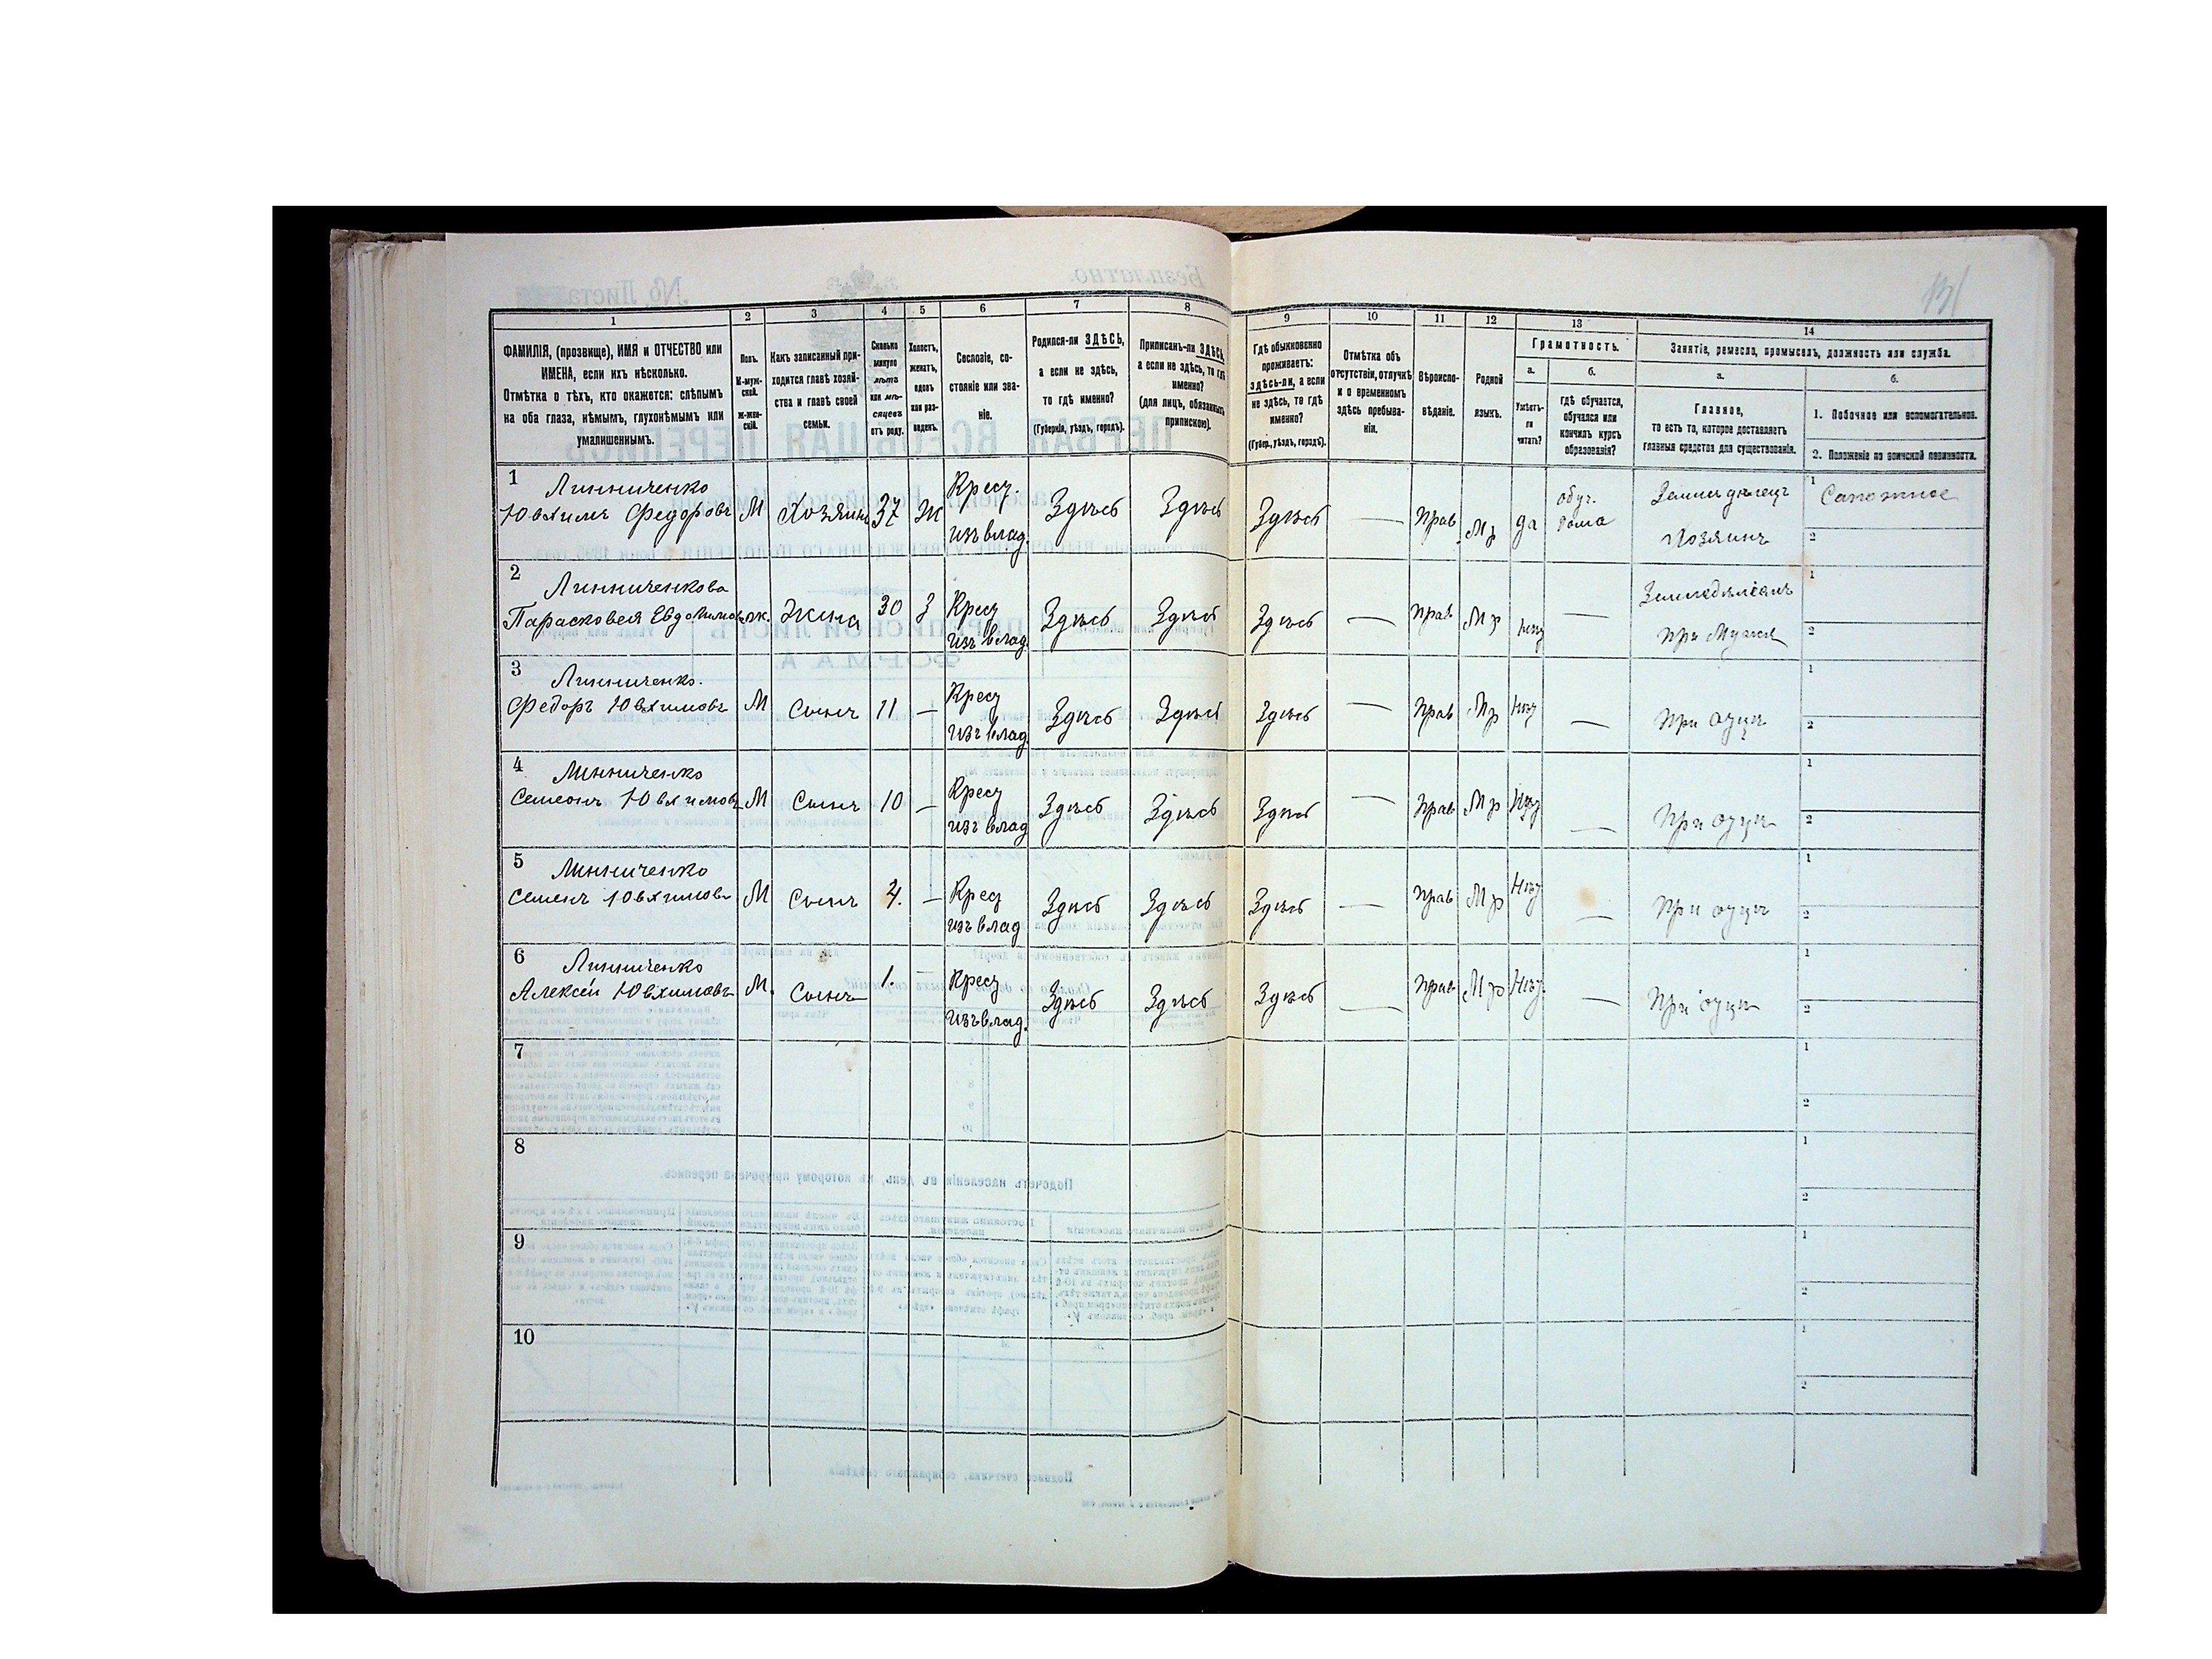 131
1
2
3
4
5
6
7
8
9
10
11
12
13
14
ФАМИЛІЯ, (прозвище), ИМЯ и ОТЧЕСТВО или
ИМЕНА, если ихъ нѣсколько.
Отмѣтка о тѣхъ, кто окажется: слѣпымъ
на оба глаза, нѣмымъ, глухонѣмымъ или
умалишеннымъ.
Полъ.
М-муж-
ской.
Ж-жен-
скій.
Какъ записанный при-
ходится главѣ хозяй-
ства и главѣ своей
семьи.
Сколько
минуло
лѣтъ
или мѣ-
сяцевъ
отъ роду.
Холостъ,
женатъ,
вдовъ
или раз-
веденъ.
Сословіе, со-
стояніе или зва-
ніе.
Родился-ли ЗДѢСЬ,
а если не здѣсь,
то гдѣ именно?
(Губернія, уѣздъ, городъ).
Приписанъ-ли ЗДѢСЬ,
а если не здѣсь, то гдѣ
именно?
(для лицъ, обязанныхъ
припискою).
Гдѣ обыкновенно
проживаетъ:
здѣсь-ли, а если
не здѣсь, то гдѣ
именно?
(Губер., уѣздъ, городъ).
Отмѣтка объ
отсутствіи, отлучкѣ
и о временномъ
здѣсь пребыва-
ніи.
Вѣроиспо-
вѣданіе.
Родной
языкъ.
Грамотность.
а.
Умѣетъ-
ли
читать?
б.
гдѣ обучается,
обучался или
кончилъ курсъ
образованія?
Занятіе, ремесло, промыселъ, должность или служба.
а.
Главное,
то есть то, которое доставляетъ
главныя средства для существованія.
б.
1. Побочное или вспомогательное.
2. Положеніе по воинской повинности.
1 Линниченко
Ювхимъ Федоровъ М Хозяинъ 37 Ж Крест. изъ влад. Здѣсь Здѣсь Здѣсь — Прав Мр да обуч. дома Земледѣлецъ хозяинъ 1 Сапожное 2
2 Линниченкова
Парасковея Евдокимова ж. Жена 30 З Крест изъ влад. Здѣсь Здѣсь Здѣсь — Прав Мр нѣт — при Мужѣ 1 2
3 Линниченко.
Федоръ Ювхимовъ М Сынъ 11 — Крест изъ влад Здѣсь Здѣсь Здѣсь — Прав Мр Нѣт — При отцѣ 1 2
4 Линниченко
Семеонъ Ювхимовъ М Сынъ 10 — Крест изъ влад Здѣсь Здѣсь Здѣсь — Прав Мр Нѣт — При отцѣ 1 2
5 Линниченко
Семенъ Ювхимовъ М Сынъ 4. — Крест изъ влад Здѣсь Здѣсь Здѣсь — Прав Мр Нѣт — При отцѣ 1 2
6 Линниченко
Алексѣй Ювхимовъ М. Сынъ 1. — Крест изъ влад. Здѣсь Здѣсь Здѣсь — Прав Мр Нѣт — При отцѣ 1 2
7 1 2
8 1 2
9 1 2
10 1 2